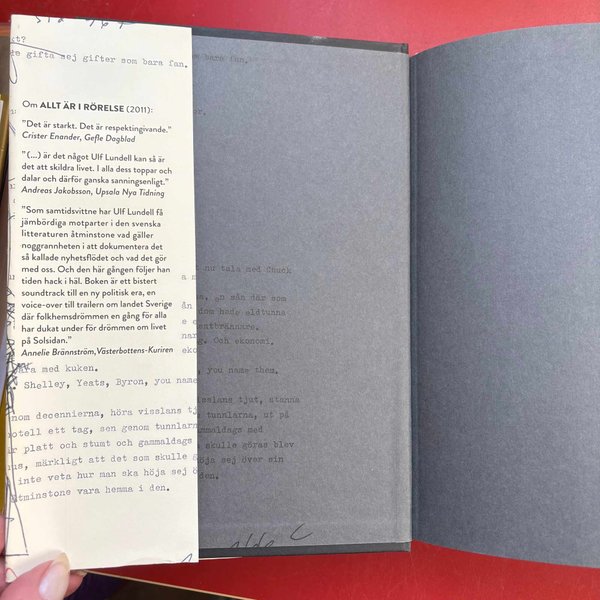 kt?
gifta sej gifter som bara fan.
som bara fan.
Om ALLT ÄR I RÖRELSE (2011):
"Det är starkt. Det är respektingivande."
Crister Enander, Gefle Dagblad
"(...) är det något Ulf Lundell kan så är
det att skildra livet. I alla dess toppar och
dalar och därför ganska sanningsenligt."
Andreas Jakobsson, Upsala Nya Tidning
"Som samtidsvittne har Ulf Lundell få
jämbördiga motparter i den svenska
litteraturen åtminstone vad gäller
noggrannheten i att dokumentera det
så kallade nyhetsflödet och vad det gör
med oss. Och den här gången följer han
tiden hack i häl. Boken är ett bistert
soundtrack till en ny politisk era, en
voice-over till trailern om landet Sverige
där folkhemsdrömmen en gång för alla
har dukat under för drömmen om livet
på Solsidan."
Annelie Brännström, Västerbottens-Kuriren
med kuken.
Shelley, Yeats, Byron, you name
nom decennierna, höra visslans tj
otell ett tag, sen genom tunnlar
r platt och stumt och gammaldags
us, märkligt att det som skulle g
inte veta hur man ska höja sej ö
åtminstone vara hemma i den.
nu tala med Chuck
en sån där som
dom hade eldtunna
entbrännare.
Och ekonomi.
you name them.
visslans tjut, stanna
tunnlarna, ut på
gammaldags med
skulle göras blev
höja sej över sin
den.